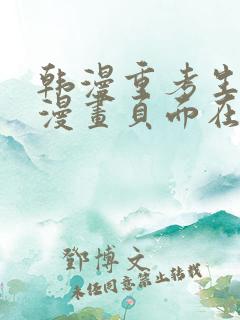 韩漫重考生
漫畫頁而在
鄧博文
未经同意禁止转载